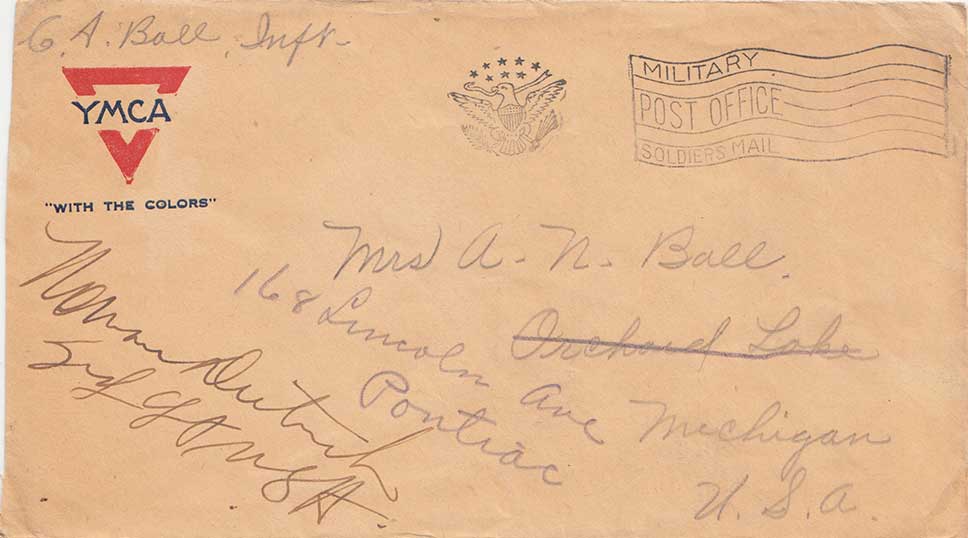 C. A. Ball, Inft-
YMCA
"WITH THE COLORS"
MILITARY
POST OFFICE
SOLDIERS MAIL
Mrs A. N. Ball.
168 Lincoln Ave
Orchard Lake
Pontiac
Michigan
U. S. A.
Norman